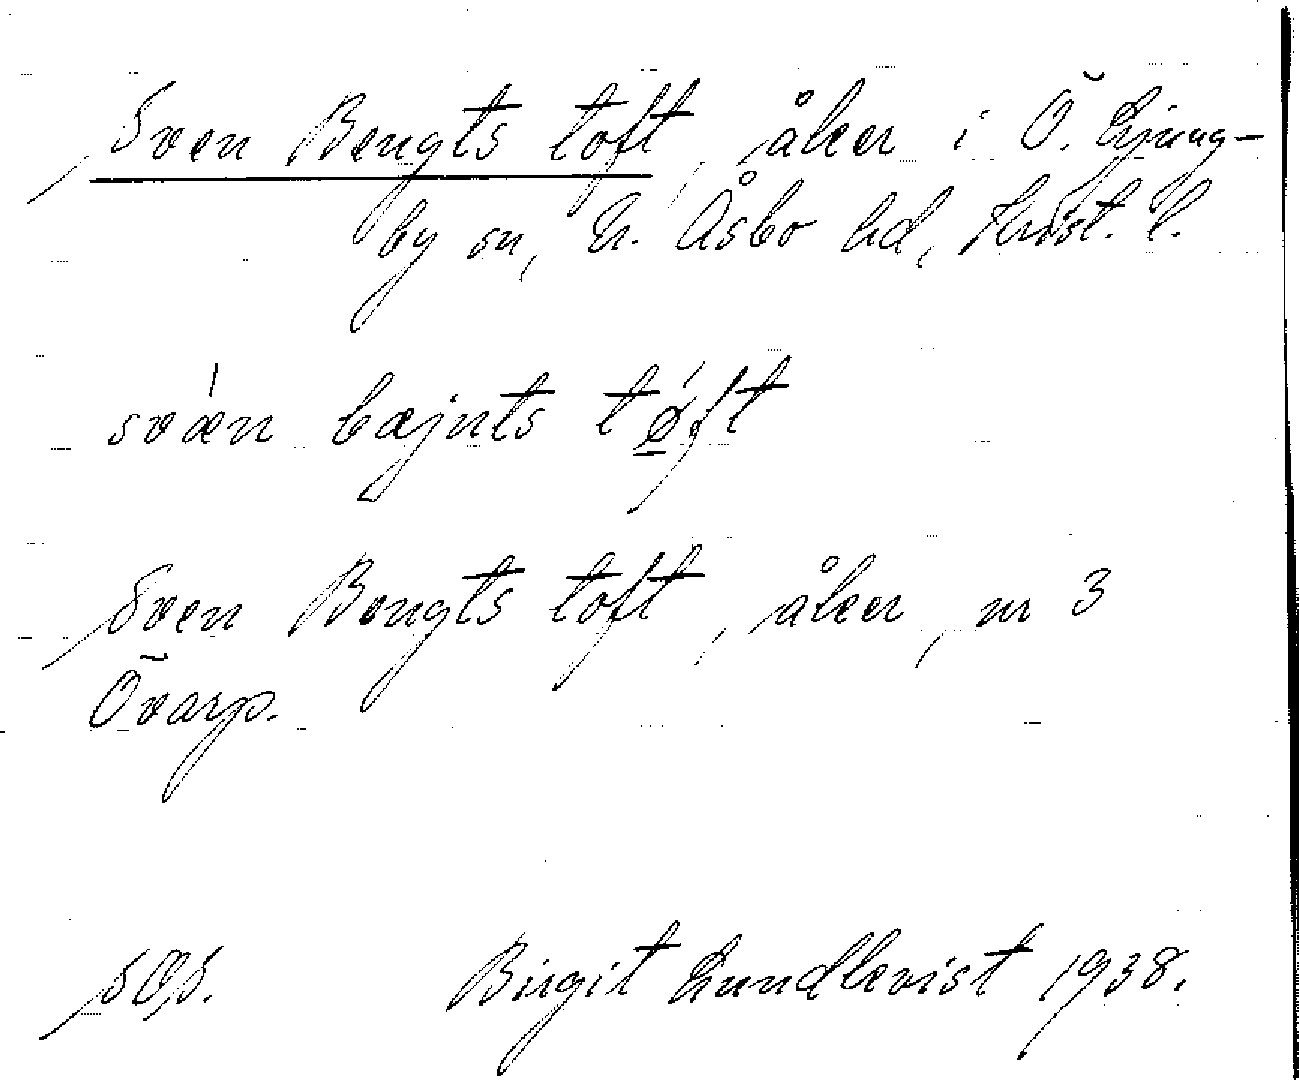 Sven Bengts toft, åker i Ö. Ljung-
by sn, N. Åsbo hd, Krist. l.
svæn bæjnts tøft
Sven Bengts toft, åker, nr 3
Övarp.
Birgit Lundkvist 1938.